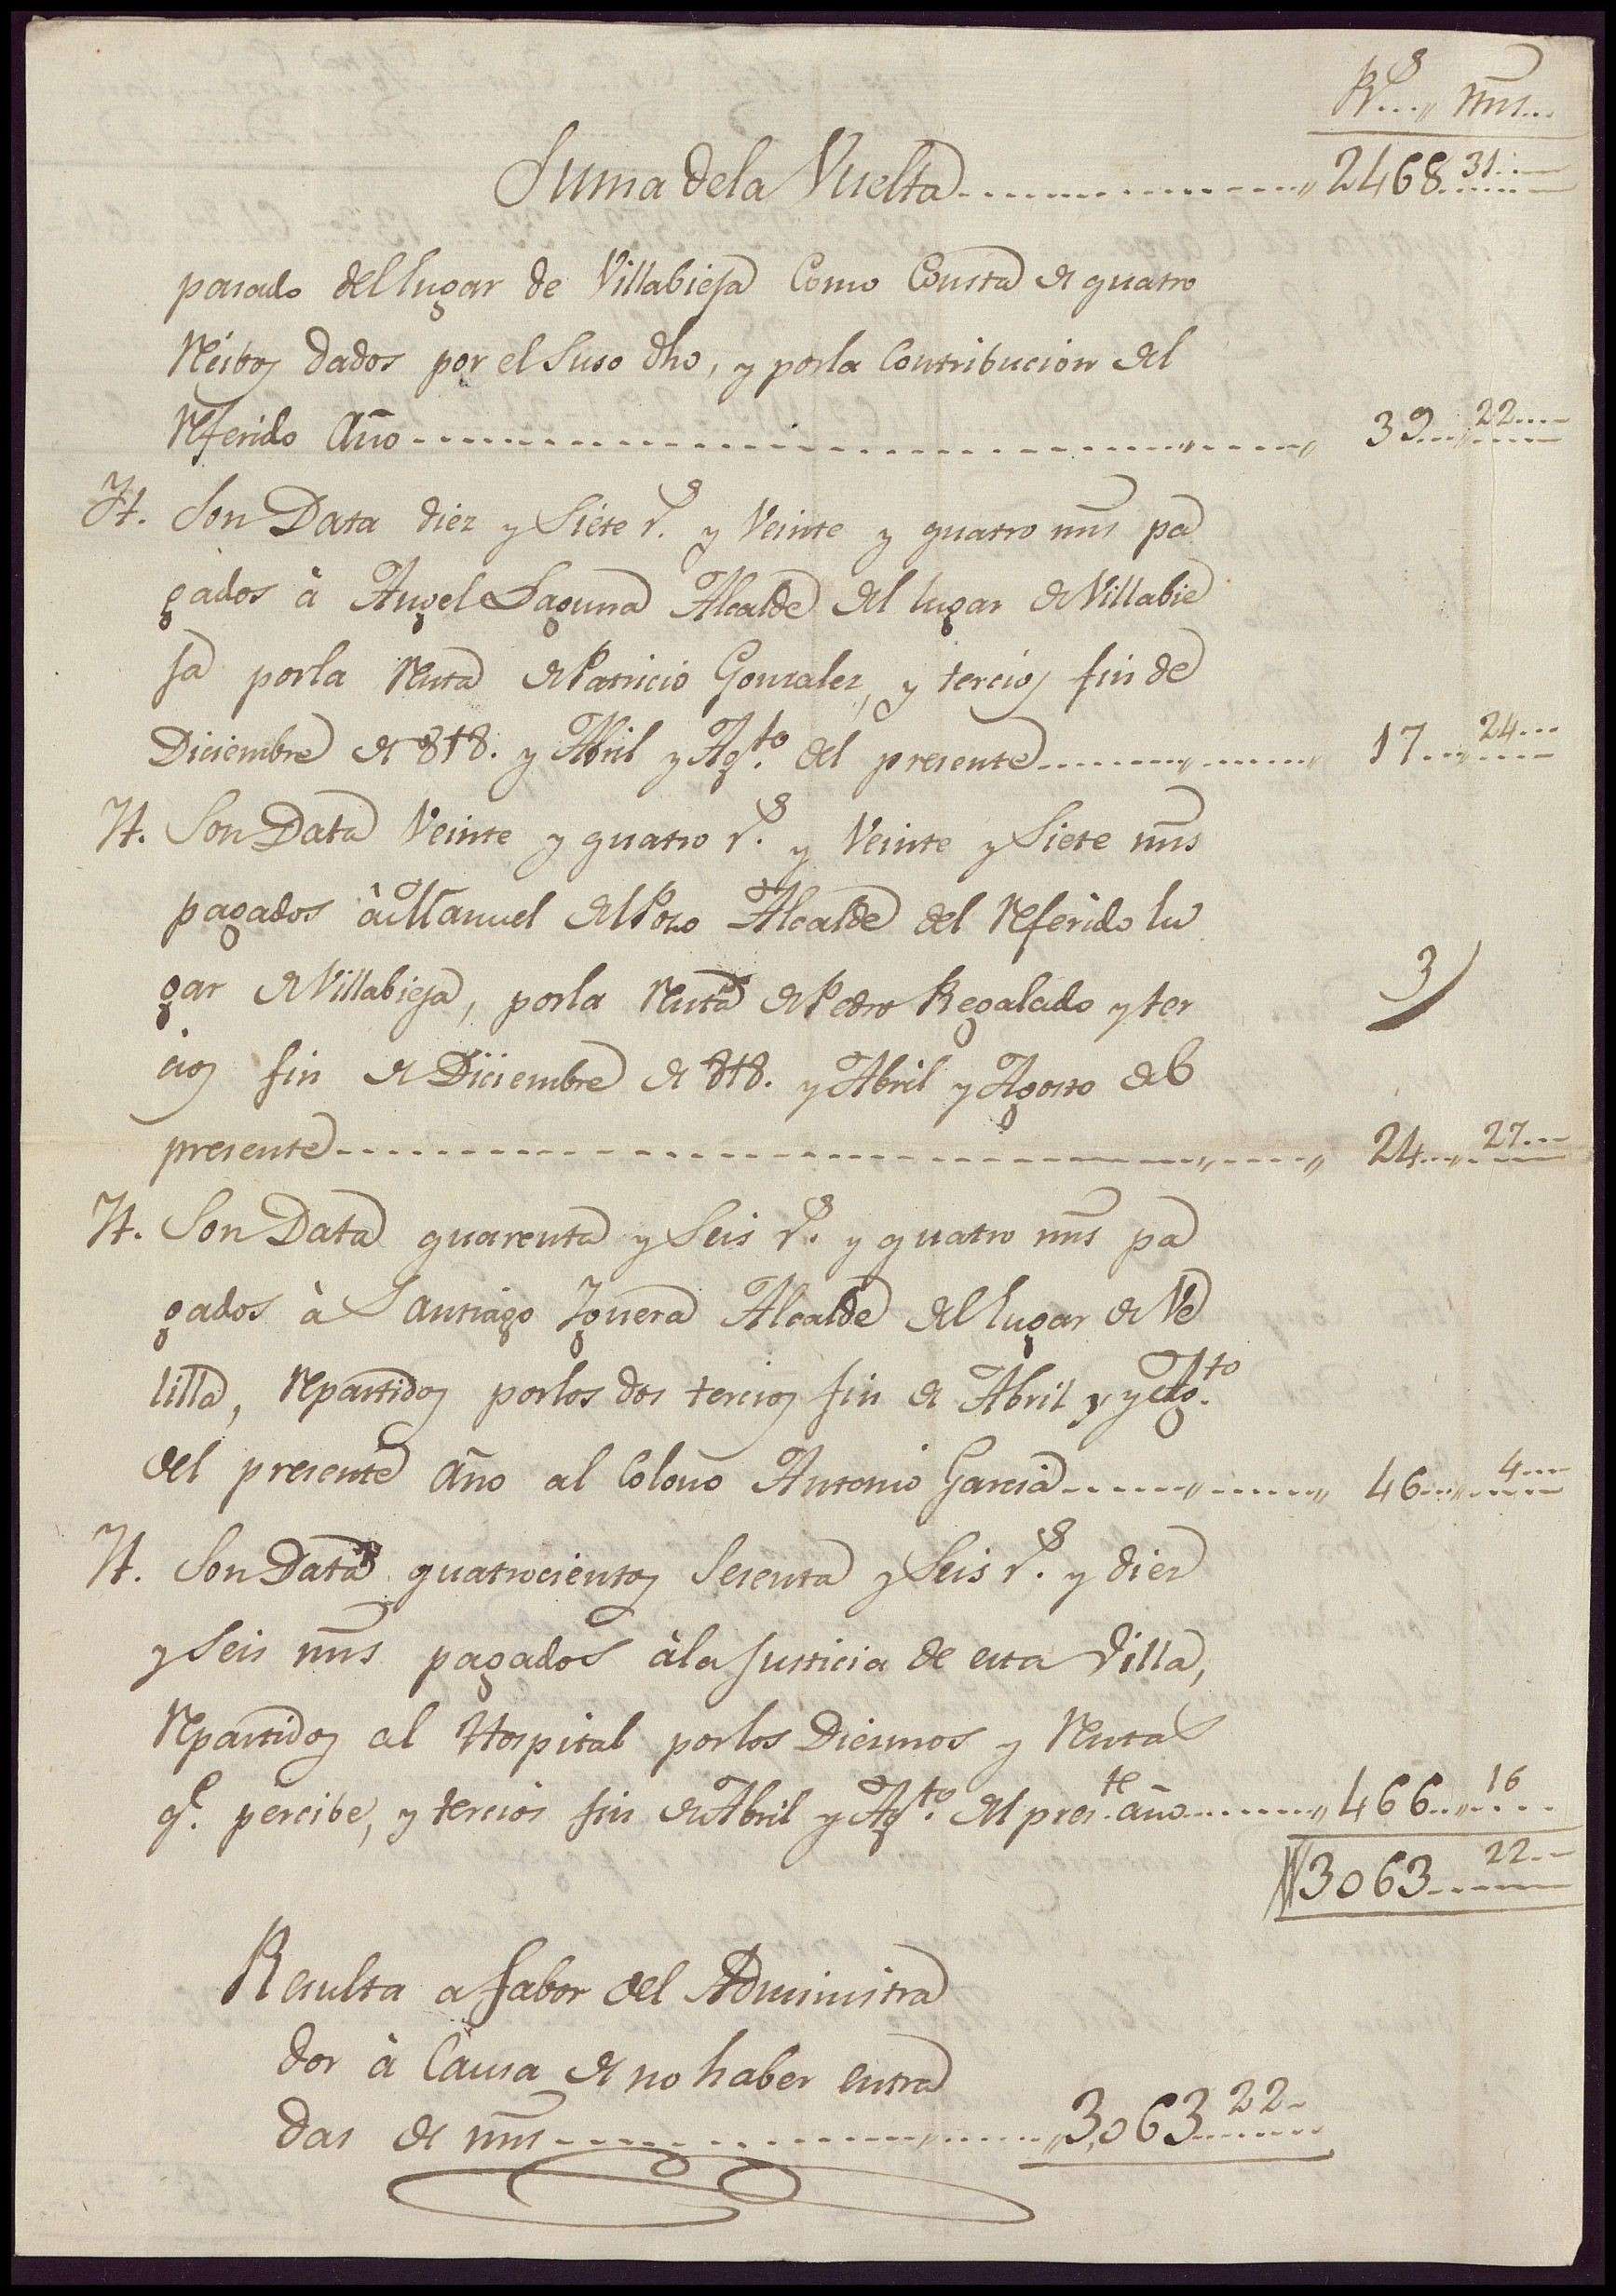 R.s mrs
Suma dela Vuelta 2468 31
pasado del lugar de Villabieja Como Consta de quatro
Recibos dados por el suso dho, y porla Contribucion del
Referido año 39 22
It. Son Data diez y Siete r.s y Veinte y quatro mrs pa
gados à Angel Laguna Alcalde del lugar de Villabie
ja porla Renta de Patricio Gonzalez, y tercios fin de
Diciembre de 818. y Abril y Ag.to del presente 17 24
It. Son Data Veinte y quatro r.s y Veinte y Siete mrs
pagados à Manuel del Pozo Alcalde del Referido lu
gar de Villabieja, porla Renta de Pedro Regalado y ter
cios fin de Diciembre de 818. y Abril y Agosto del
presente 24 27
It. Son Data quarenta y Seis r.s y quatro mrs pa
gados à Santiago Iguera Alcalde del lugar de Ve
lilla, Repartidos porlos dos tercios fin de Abril y y Ag.to
del presente año al Colono Antonio Garcia 46 4
It. Son Data quatrocientos Sesenta y Seis r.s y diez
y Seis mrs pagados àla Justicia de esta Villa,
Repartidos al Hospital porlos Diezmos y Rentas
q.e percibe, y tercios fin de Abril y Ag.to del pres.te año 466 16
3063 22
Resulta a fabor del Administra
dor à Causa de no haber entra
das de mrs 3,063 22
3